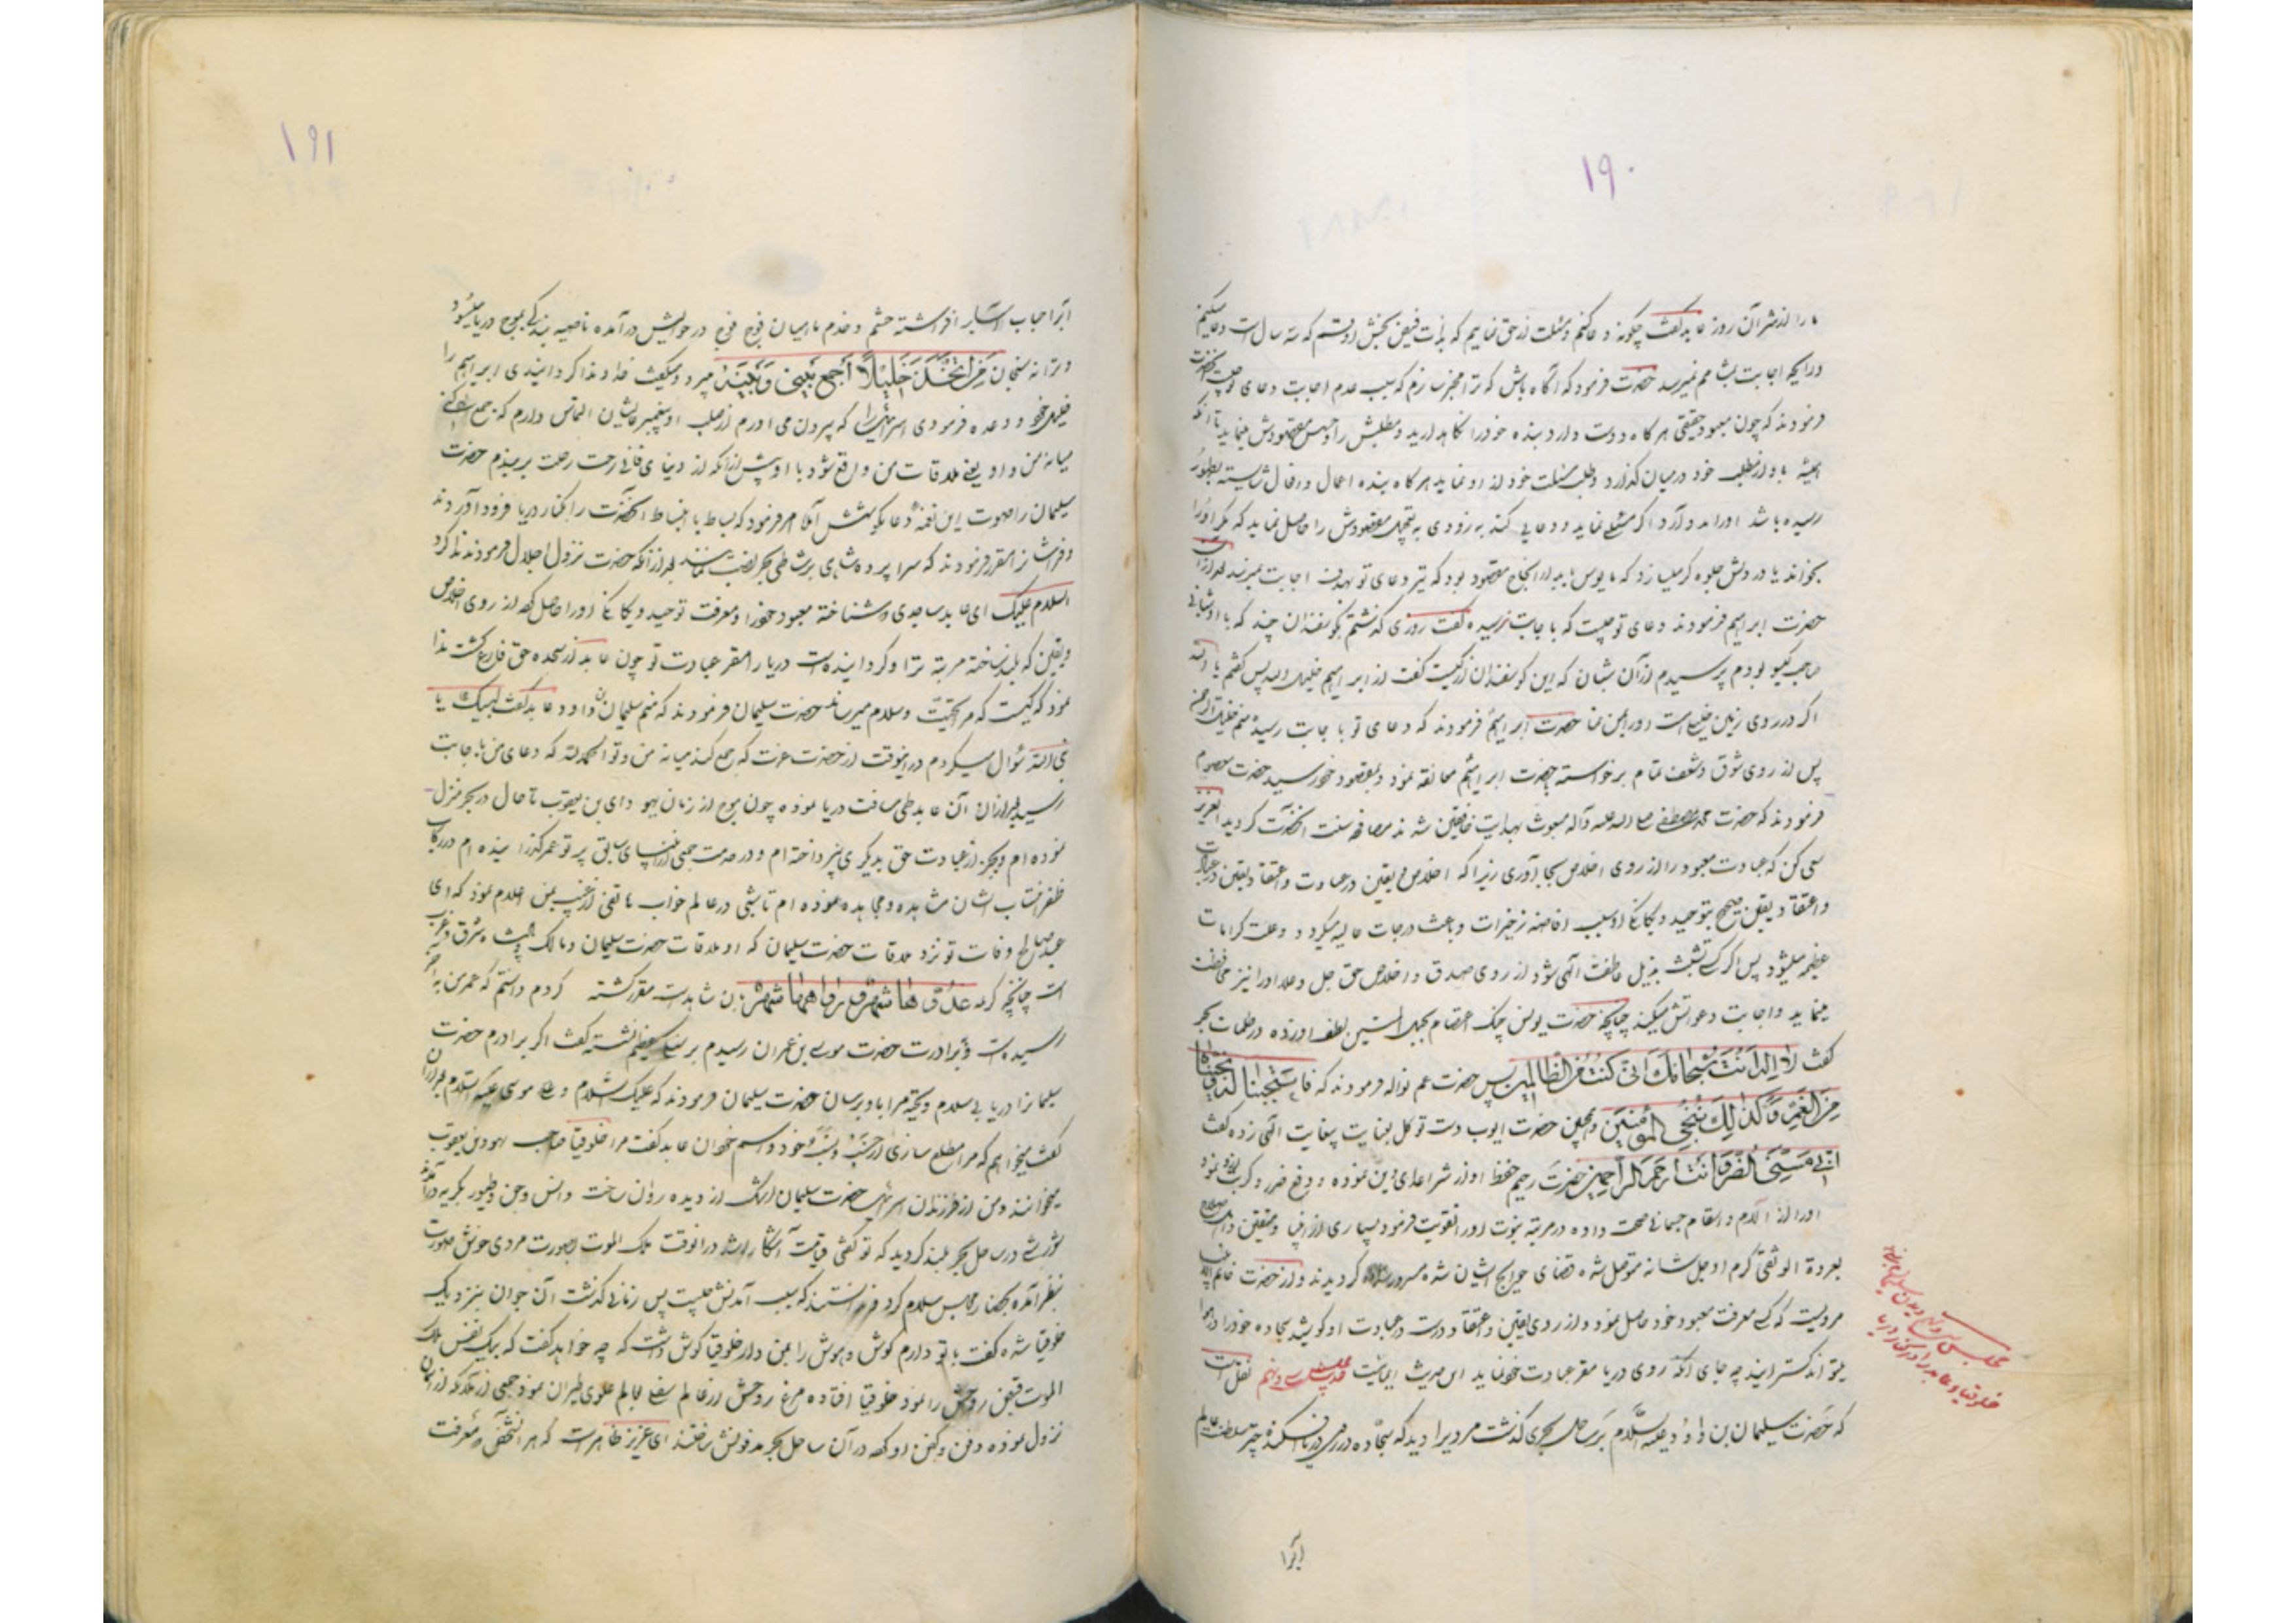 ۱۹۰
ما را از شر آن روز عابد گفت چگونه دعا کنم و مسئلت از حق نمایم که بذات فیض بخش او قسم که سه سال است دعا میکنم
و رایحه اجابت بمشامم نمیرسد حضرت فرمود که آگاه باش که ترا مخبر سازم که سبب عدم اجابت دعای تو چیست
فرمودند که چون معبود حقیقی هرگاه دوست دارد بنده خود را نگاهدارد و مطلبش را و حبس مقصودش نماید تا آنکه
همیشه با او از مطلب خود در میان گذارد و طلب مسئلت خود از او نماید هرگاه بنده اعمال و افعال شایسته
رسیده باشد او را مسئلتی نماید و دعایی کند به زودی مقصودش را حاصل نماید که دیگر او را
بخواند یا در دلش جلوه گر میسازد که مایوس باید از انجاح مقصود بود که تیر دعای تو بهدف اجابت نمیرسد بعد از آن
حضرت ابراهیم فرمودند دعای تو چیست که باجابت نرسیده گفت روزی گذشتم بگوسفندان چند که با او شبانی
صاحب گیسو بودم پرسیدم از آن شبان که این گوسفندان از کیست گفت از ابراهیم خلیل الله پس گفتم یا الله
اگر در روی زمین خلیلت است او را بمن نما حضرت ابراهیم فرمودند که دعای تو باجابت رسیده منم خلیل الرحمن
پس از روی شوق و شعف تمام برخواسته بحضرت ابراهیم معانقه نمود و بمقصود خود رسید حضرت معصوم
فرمودند که حضرت محمد مصطفی صلی الله علیه و آله مبعوث بهدایت شدند مصافحه سنت آنحضرت گردید ای عزیز
سعی کن که عبادت معبود را از روی اخلاص بجا آوری زیرا که اخلاص و یقین در عبادت و اعتقاد و یقین در عبادت
و اعتقاد و یقین صحیح بتوحید و یگانگی او سبب افاضه خیرات و باعث درجات عالیه میگردد و علت کرامات
عظیمه میشود پس اگر کسی متشبث بذیل عاطفت الهی شود از روی صدق و اخلاص حق جل و علا او را نیز محافظت
مینماید و اجابت دعوتش میکند چنانچه حضرت یونس چنگ اعتصام بحبل المتین لطف او زده در ظلمات بحر
گفت لا اله الا انت سبحانک انی کنت من الظالمین پس حضرت عم نواله فرمودند که فاستجبنا له و نجیناه
من الغم و کذلک ننجی المؤمنین و همچنین حضرت ایوب دست توکل بعنایت بیغایت الهی زده گفت
انی مسنی الضر و انت ارحم الراحمین حضرت رحیم حفظ او از شر اعدای دین نموده و دفع ضرر و کرب از او نمود
او را از آلام و اسقام جسمانی صحت داده در مرتبه نبوت او را تقویت فرمود بسیاری از انبیا و متقین
بعروة الوثقی کرم او جل شانه متوسل شده قضای حوایج ایشان شده مسرور گردیدند و از حضرت
مرویست که کسی معرفت معبود خود حاصل نمود و از روی یقین و اعتقاد درست در عبادت او کوشید سجاده خود را در هوا
میتواند گسترانید چه جای آنکه روی دریا مقر عبادت خود نماید این حدیث مجلس سی و نهم نقل است
که حضرت سلیمان بن داود علیه السلام بر ساحل بحری گذشت مردیرا دید که سجاده در روی دریا افکنده
ابرا
مجلس سی و نهم دیدن سلیمان
خلوقیا عابد را در کنار دریا
۱۹۱
ابرا حجاب آسا بر افراشته حشم و خدم ماهیان فوج فوج در حوالیش درآمده ناصیه بندگی بموج دریا میسود
و ترانه سنجان من اتخذت خلیلاً اجمع بینی و بینه میبرد و میگفت خداوندا گردانیدی ابراهیم را
خلیل خود و وعده فرمودی اسرائیل را که بیرون می آورم از صلب او پیغمبر عالیشان التماس دارم که جمع
میانه من و او یعنی ملاقات من واقع شود با او پیش از آنکه از دنیای فانی رخت رحلت بربندم حضرت
سلیمان را صوت این نغمه دعا بگوشش آمد امر فرمود که بساط با انبساط آنحضرت را بکنار دریا فرود آوردند
و فراشان را مقرر فرمودند که سراپرده شاهی بر شاطی بحر نصب نمایند بعد از آنکه حضرت نزول اجلال فرمودند ندا کرد
السلام علیک ای عابد ساجدی شناخته معبود خود را و معرفت توحید و یگانگی او را حاصل کرد از روی اخلاص
و یقین که بلند ساخته مرتبه ترا و گردانیده است دریا را مقر عبادت تو چون عابد از سجده حق فارغ گشت ندا
نمود که کیست که مرا تحیت و سلام میرساند حضرت سلیمان فرمودند که منم سلیمان بن داود عابد گفت لبیک یا
نبی الله سؤال میکردم در اینوقت از حضرت عزت که جمع کند میانه من و تو الحمد لله که دعای من باجابت
رسید بعد از آن آن عابد طی مسافت دریا نموده چون موج از زمان یهودای بن یعقوب تا حال در بحر منزل
نموده ام و بجز از عبادت حق بدیگری نپرداخته ام و در خدمت جمعی از انبیای سابق پرتو عمر گذرانیده ام در رکاب
ظفر انتساب ایشان مشاهده و مجاهده نموده ام تا شبی در عالم خواب هاتفی از غیب بمن اعلام نمود که ای
عبد صالح وفات تو نزد ملاقات حضرت سلیمان که او ملاقات حضرت سلیمان و مالک شرق و غرب
است چنانچه کریمه غدوها شهر و رواحها شهر بدان شاهدست مقرر گشته کردم دانستم که عمر من به آخر
رسیده است و برادرت حضرت موسی بن عمران رسیدم بر سنگ عظیم نشسته گفت اگر برادرم حضرت
سلیمان را دریابی سلام و تحیة مرا باو برسان حضرت سلیمان فرمودند که علیک السلام و علی موسی علیه السلام بعد از آن
گفت میخواهم که مرا مطلع سازی از حسب و نسب خود و اسم خود آن عابد گفت مرا خلوقیا صاحب یهودا بن یعقوب
میخوانند و من از فرزندان اسرائیل حضرت سلیمان اشک از دیده روان ساخت و انس و جن و طیور بگریه درآمد
شورشی در ساحل بحر بلند گردید که تو گفتی قیامت آشکار شد در آنوقت ملک الموت بصورت مردی خوش صورت
بنظر آمده بکنار مجلس سلام کرد ندانستند که سبب آمدنش چیست پس زمانی گذشت آن جوان بنزدیک
خلوقیا شده گفت با تو دارم گوش و هوش را بمن دار خلوقیا گوش داشت که چه خواهد گفت که بیک نفس ملک
الموت قبض روحش را نمود خلوقیا افتاده مرغ روحش از عالم سفلی بعالم علوی طیران نمود جمعی از ملائکه از آسمان
نزول نموده دفن و کفن او کرده در آن ساحل بحر مدفونش ساختند ای عزیز ظاهر است که هر آن شخص که معرفت